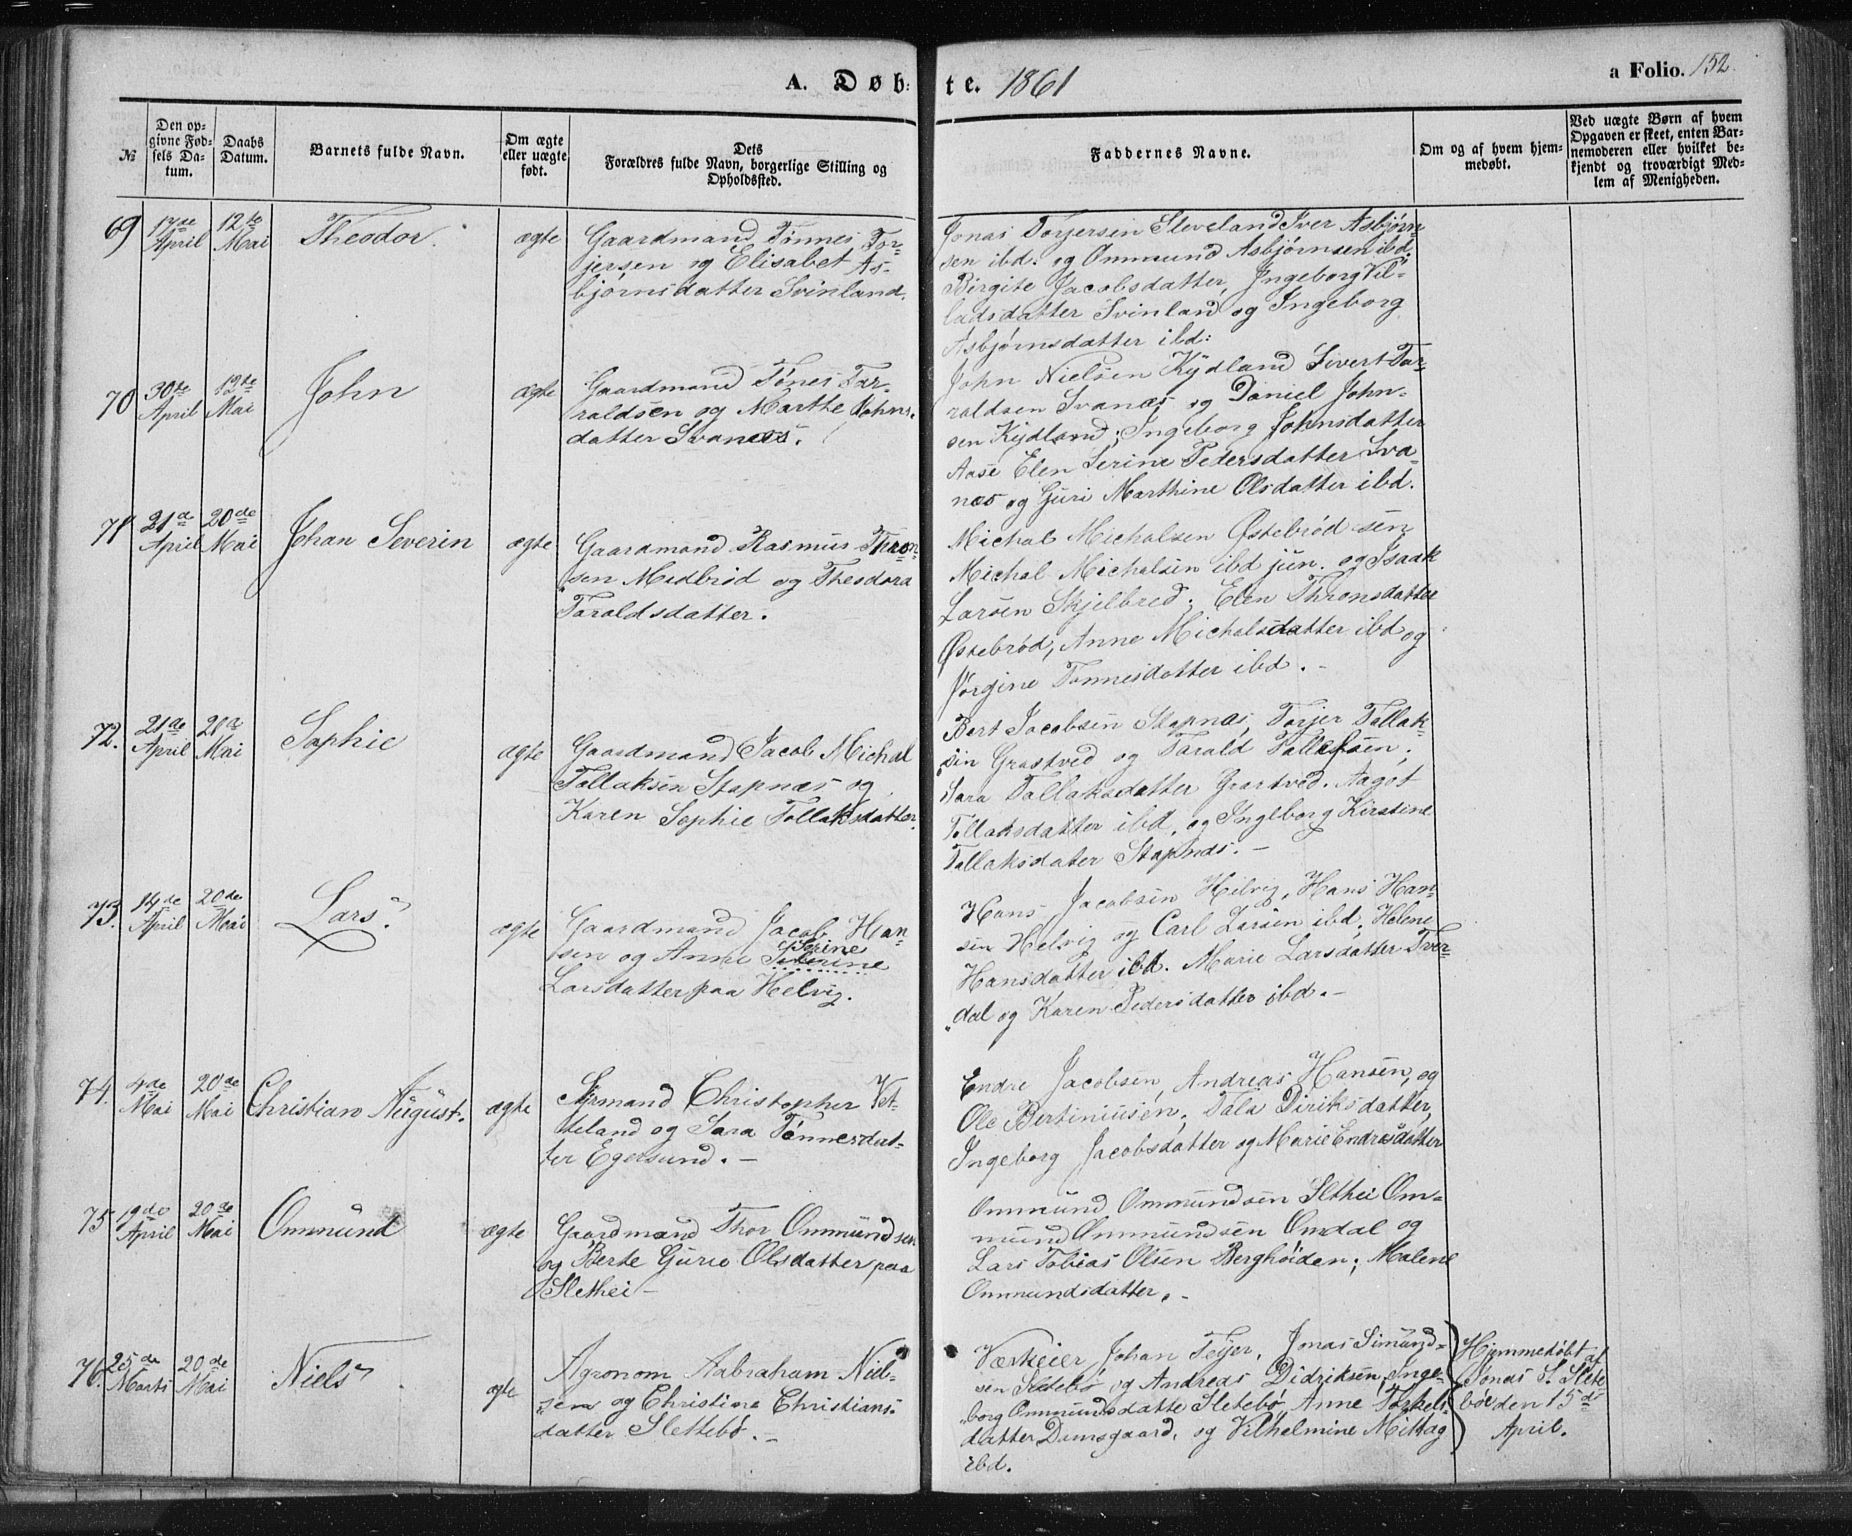 A. Døb-te. 1861
a Folio. 152
№
Den op-
givne Fød-
sels Da-
tum.
Daabs
Datum.
Barnets fulde Navn.
Om ægte
eller uægte
født.
Dets
Forældres fulde Navn, borgerlige Stilling og
Opholdssted.
Faddernes Navne.
Om og af hvem hjem-
medøbt.
Ved uægte Børn af hvem
Opgaven er skeet, enten Bar-
nemoderen eller hvilket be-
kjendt og troværdigt Med-
lem af Menigheden.
69
17de
April
12te
Mai
Theodor.
ægte
Gaardmand Tønnes Tor-
jersen og Elisabet As-
bjornsdatter Svinland.
Jonas Torjersen Sleveland Iver Asbjørn-
sen ibd: og Ommund Asbjørnsen ibd:
Birgite Jacobsdatter, Ingeborg Vil-
ladsdatter Svinland og Ingeborg
Asbjørnsdatter ibd:
70
30te
April
12te
Mai
John
ægte
Gaardmand Tønes Tar-
raldsen og Marthe Johns-
datter Svanæs.
John Nielsen Kydland Sivert Tar-
raldsen Svanæs og Daniel John-
sen Kydland; Ingeborg Johnsdatter
Aase Elen Serine Pedersdatter Sva-
næs og Guri Marthine Olsdatter ibd.
71
21de
April
20de
Mai
Johan Severin
ægte
Gaardmand Rasmus Thron-
sen Midbrød og Theodora
Taraldsdatter.
Michal Michalsen Østebrød sen
Michal Michalsen ibd jun. og Isaak
Larsen Skjelbred; Elen Thronsdatter
Østebrød, Anne Michalsdatter ibd og
Jørgine Tønnesdatter ibd. -
72.
21de
April
20de
Mai
Sophie
ægte
Gaardmand Jacob Michal
Tollaksen Stapnæs og
Karen Sophie Tollaksdatter.
Bert Jacobsen Stapnæs, Torjer Tollak-
sen Grastved og Tarald Tollefsen;
Sara Tollaksdatter Grastved. Aagot
Tollaksdatter ibd, og Ingeborg Kirstine
Tollaksdater Stapnæs. -
73.
14de
April
20de
Mai
Lars
ægte
Gaardmand Jacob Han-
sen og Anne Serine
Larsdatter paa Helvig.
Hans Jacobsen Helvig, Hans Han-
sen Helvig og Carl Larsen ibd; Helene
Hansdatter ibd. Marie Larsdatter Tver-
dal og Karen Pedersdatter ibd. -
74.
4de
Mai
20de
Mai
Christian August.
ægte
Sømand Christopher Vet-
teland og Sara Tønnesdat-
ter Egersund. -
Endre Jacobsen, Andreas Hansen, og
Ole Bertiniusen; Tala Diriksdatter,
Ingeborg Jacobsdatter og Marie Endresdatter
75
19de
April
20de
Mai
Ommund
ægte
Gaardmand Thor Ommundsen
og Berte Gurie Olsdatter paa
Slethei -
Ommund Ommundsen Slethei Om-
mund Ommundsen Omdal og
Lars Tobias Olsen Berghøiden; Malene
Ommundsdatter. -
76.
25de
Marts
20de
Mai
Niels
ægte
Agronom Aabraham Niel-
sen og Christine Christians-
datter Slettebø. -
Værkeier Johan Feyer, Jonas Simund-
sen Sletebø og Andreas Didriksen, Inge-
borg Ommundsdatte Sletebø, Anne Torkels-
datter Damsgaard, og Vilhelmine Mitzag
ibd.
Hjemmedøbt af
Jonas S. Slete
bø den 15de
April.